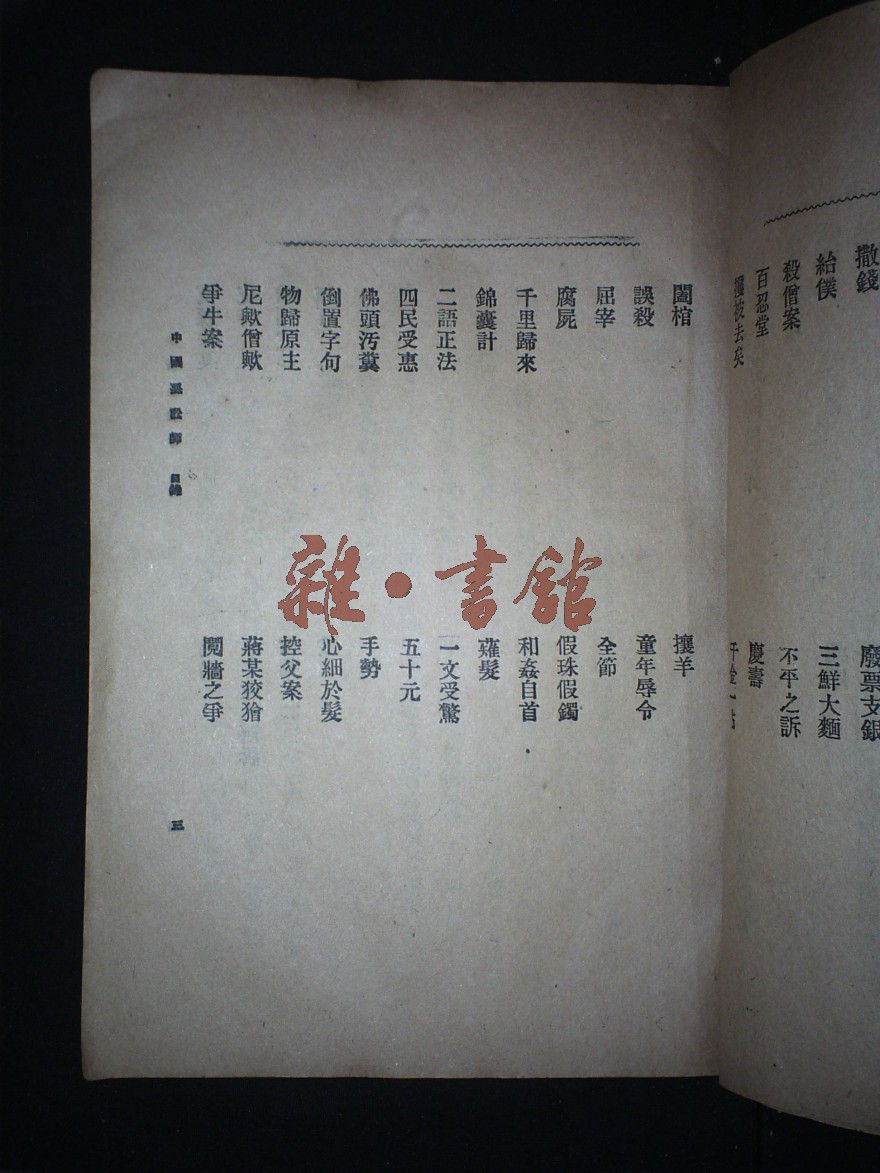 撒錢
紿僕
殺僧案
百忍堂
被去矣
廢票支銀
三鮮大麵
不平之訴
慶壽
闔棺
誤殺
屈宰
腐屍
千里歸來
錦囊計
二語正法
四民受惠
佛頭汚糞
倒置字句
物歸原主
尼歟僧歟
爭牛案
攘羊
童年辱令
全節
假珠假鐲
和姦自首
薙髮
一文受驚
五十元
手勢
心細於髮
控父案
蔣某狡獪
鬩牆之爭
中國惡訟師 目錄 三
雜·書館